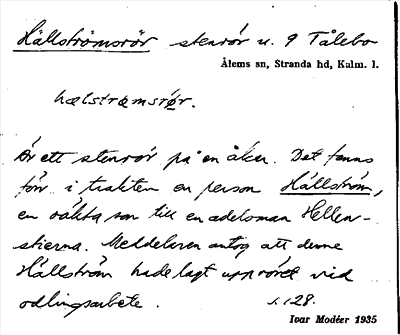 Hällströmsrör stenrör u. 9 Tålebo
Ålems sn, Stranda hd, Kalm. l.
hælstrømsrør.
Är ett stenrör på en åker. Det fanns
förr i trakten en person Hällström,
en oäkta son till en adelsman Hellen-
stierna. Meddelaren antog att denne
Hällström hade lagt upp röret vid
odlingsarbete. s. 128.
Ivar Modéer 1935